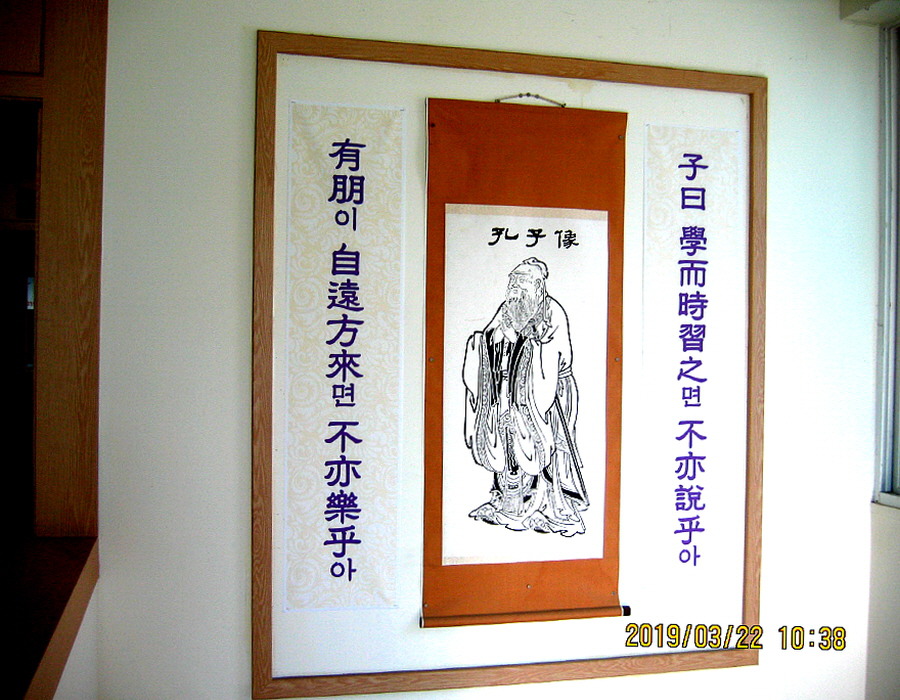 子曰 學而時習之면 不亦說乎아
孔子像
有朋이 自遠方來면 不亦樂乎아
2019/03/22 10:38